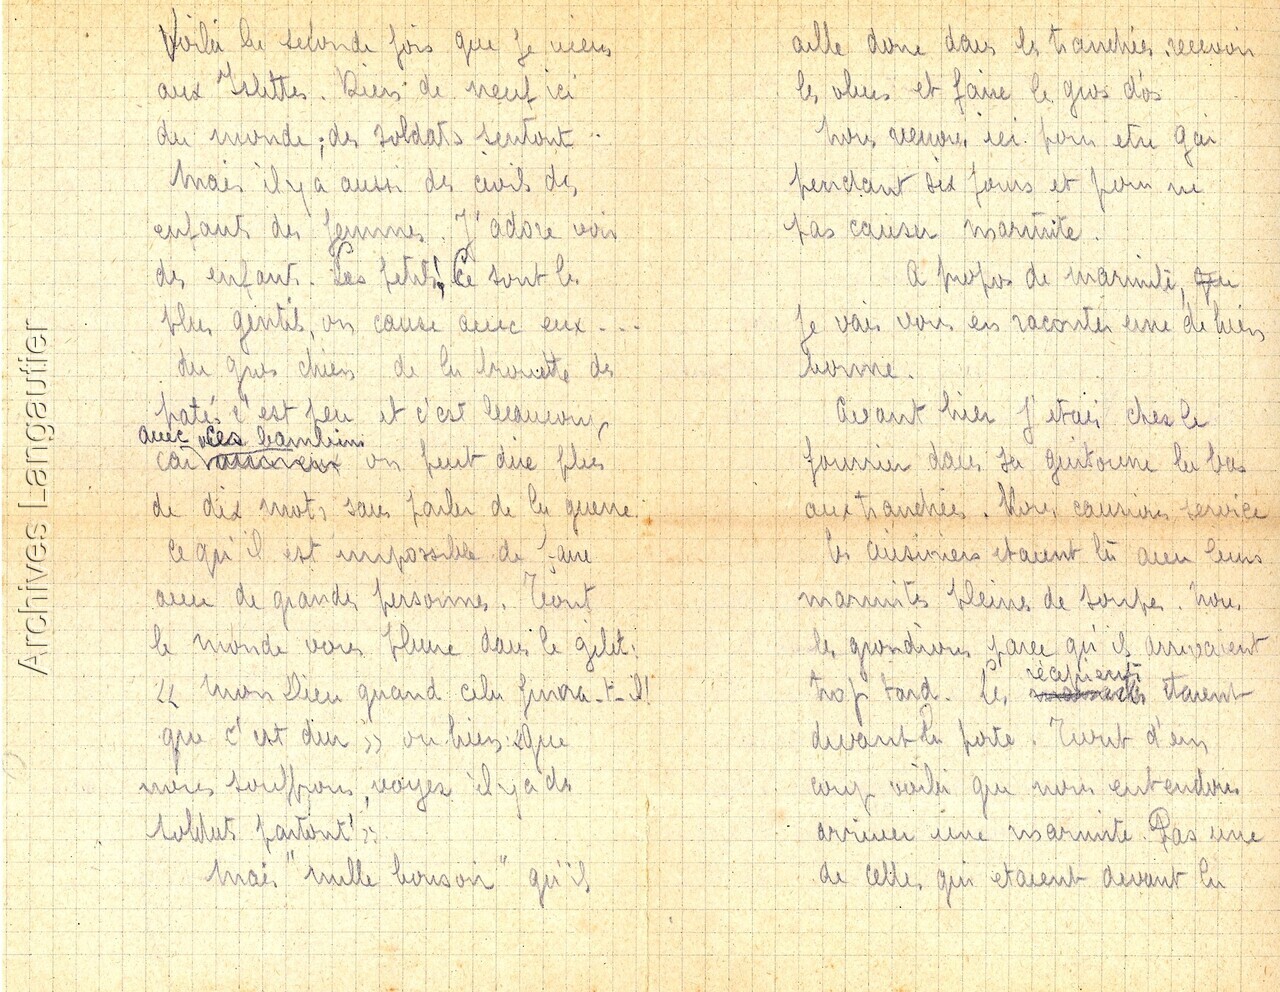 Voilà la seconde fois que je viens
aux Islettes. Rien de neuf ici
du monde ; des soldats surtout
Mais il y a aussi des civils des
enfants des femmes. J'adore voir
des enfants. Les petits, Ce sont les
plus gentils, on cause avec eux ...
du gros chien de la brouette des
patés. c'est peu et c'est beaucoup,
avec ces bambins
car on peut dire plus
de dix mots sans parler de la guerre
ce qu'il est impossible de faire
avec de grandes personnes. Tout
le monde vous pleure dans le gilet :
« Mon Dieu quand cela finira-t-il !
que c'est dur » ou bien : « Que
nous souffrons, voyez il y a des
soldats partout ! »
Mais "mille bonsoir" qu'ils
aille donc dans les tranchées recevoir
les obus et faire le gros dos
Nous venons ici pour etre gai
pendant six jours et pour ne
pas causer marmite.
A propos de marmite,
je vais vous en raconter une de bien
bonne.
Avant hier j'etais chez le
fourrier dans sa guitoune la bas
aux tranchées. Nous causions service
les cuisiniers etaient là avec leurs
marmites pleines de soupe. Nous
les grondions parce qu'ils arrivaient
récipients
trop tard. Les etaient
devant la porte. Tout d'un
coup voila que nous entendons
arriver une marmite. Pas une
de celles qui etaient devant la
Archives Langautier